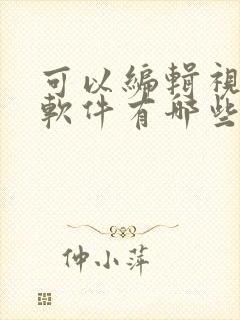 可以編輯視
軟件有哪些
仲小萍